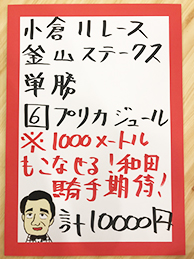 小倉11レース
釜山ステークス
単勝
6 プリカジュール
※1000メートル
もこなせる!和田
騎手期待!
計10000円